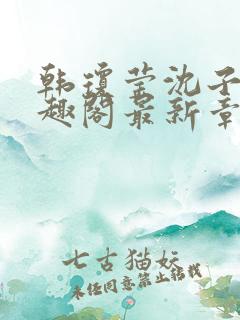 韩琼莹沈子
趣阁最新章
七古猫妖
未经同意禁止转载